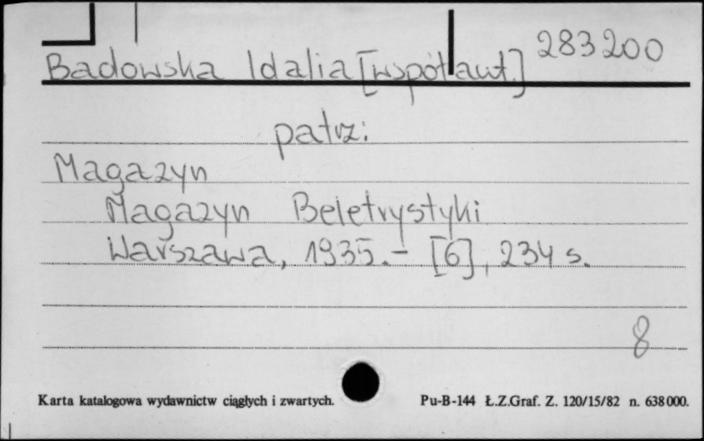 Badowska Idalia [współaut.] 283200
patrz:
Magazyn
Magazyn Beletrystyki
Warszawa, 1935.- [6], 234 s.
8
Karta katalogowa wydawnictw ciągłych i zwartych. Pu-B-144 Ł.Z.Graf. Z. 120/15/82 n. 638000.